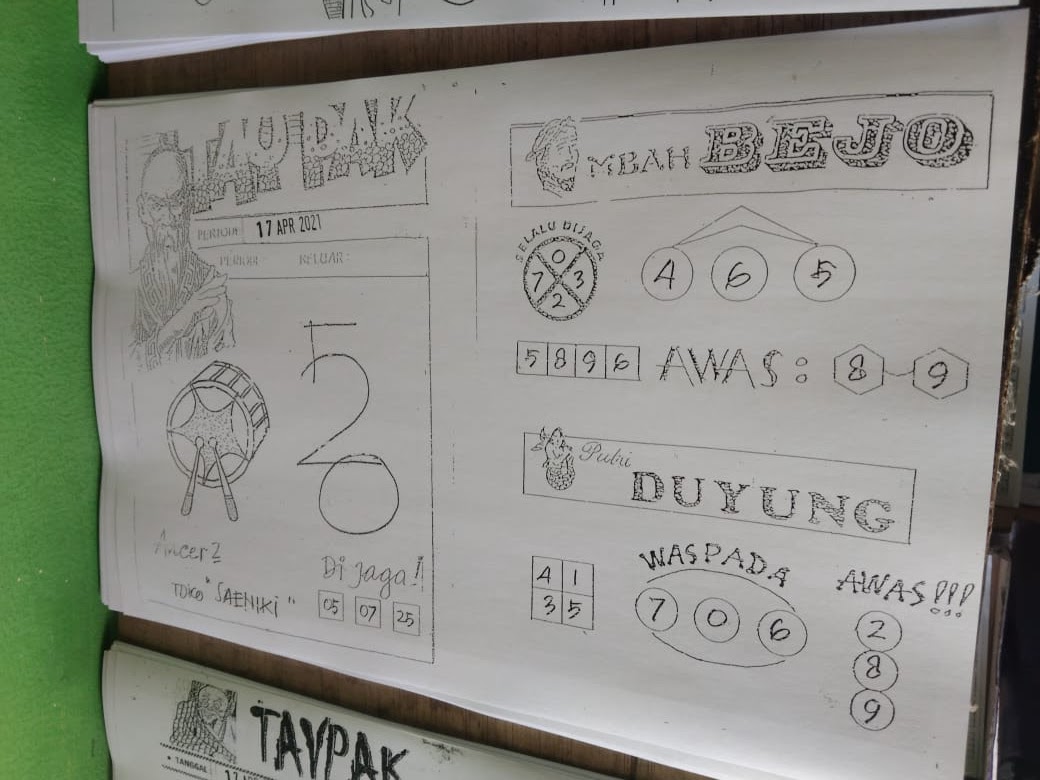 TAYPAK
PERIODE 17 APR 2021
PERIODE: KELUAR:
5
2
0
Ancer2
TOKO "SAENIKI"
Di jaga!!
05 07 25
MBAH BEJO
SELALU DIJAGA
0
7 3
2
4 6 5
5 8 9 6
AWAS: 8 - 9
Putri
DUYUNG
4 1
3 5
WASPADA
7 0 6
AWAS!!!
2
8
9
TAYPAK
TANGGAL